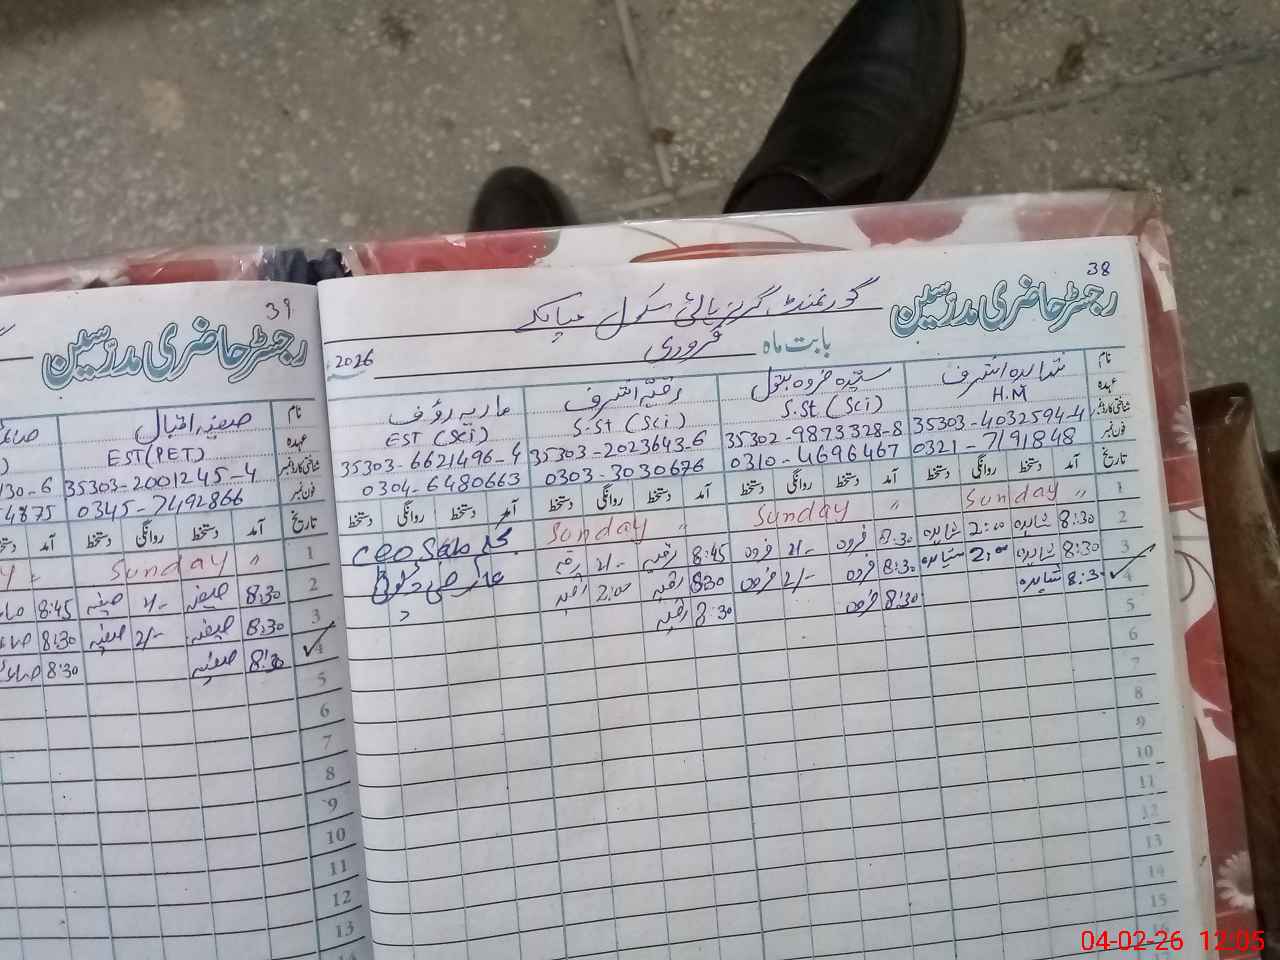 38
رجسٹر حاضری مدرسین
گورنمنٹ گرلز ہائی سکول میانکے
بابت ماہ فروری 2026
نام شاہدہ اشرف سیدہ فروہ بتول رقیہ اشرف ماریہ رؤف
عہدہ H.M S.St (Sci) S.St (Sci) EST (Sci)
شناختی کارڈ نمبر 35303-4032594-4 35302-9873328-8 35303-2023643-6 35303-6621496-4
فون نمبر 0321-7191848 0310-4696467 0303-3030676 0304-6480663
تاریخ آمد دستخط روانگی دستخط آمد دستخط روانگی دستخط آمد دستخط روانگی دستخط آمد دستخط روانگی دستخط
1 " Sunday " Sunday " Sunday
2 8:30 شاہدہ 2:00 شاہدہ 8:30 فروہ 2/- فروہ 8:45 رقیہ 2/- رقیہ CEO Sab
3 8:30 شاہدہ 2:00 شاہدہ 8:30 فروہ 2/- فروہ 8:30 رقیہ 2:00 رقیہ
4 8:3 شاہدہ 8:30 فروہ 8:30 رقیہ
5
6
7
8
9
10
11
12
13
14
15
39
رجسٹر حاضری مدرسین
نام صفیہ اقبال
عہدہ EST(PET)
شناختی کارڈ نمبر 35303-2001245-4 130-6
فون نمبر 0345-7492866 4875
تاریخ آمد دستخط روانگی دستخط آمد
1 " Sunday
2 8:30 صفیہ 2/- صفیہ 8:45
3 8:30 صفیہ 2/- صفیہ 8:30
4 8:30 صفیہ 8:30
5
6
7
8
9
10
11
12
13
04-02-26 12:05